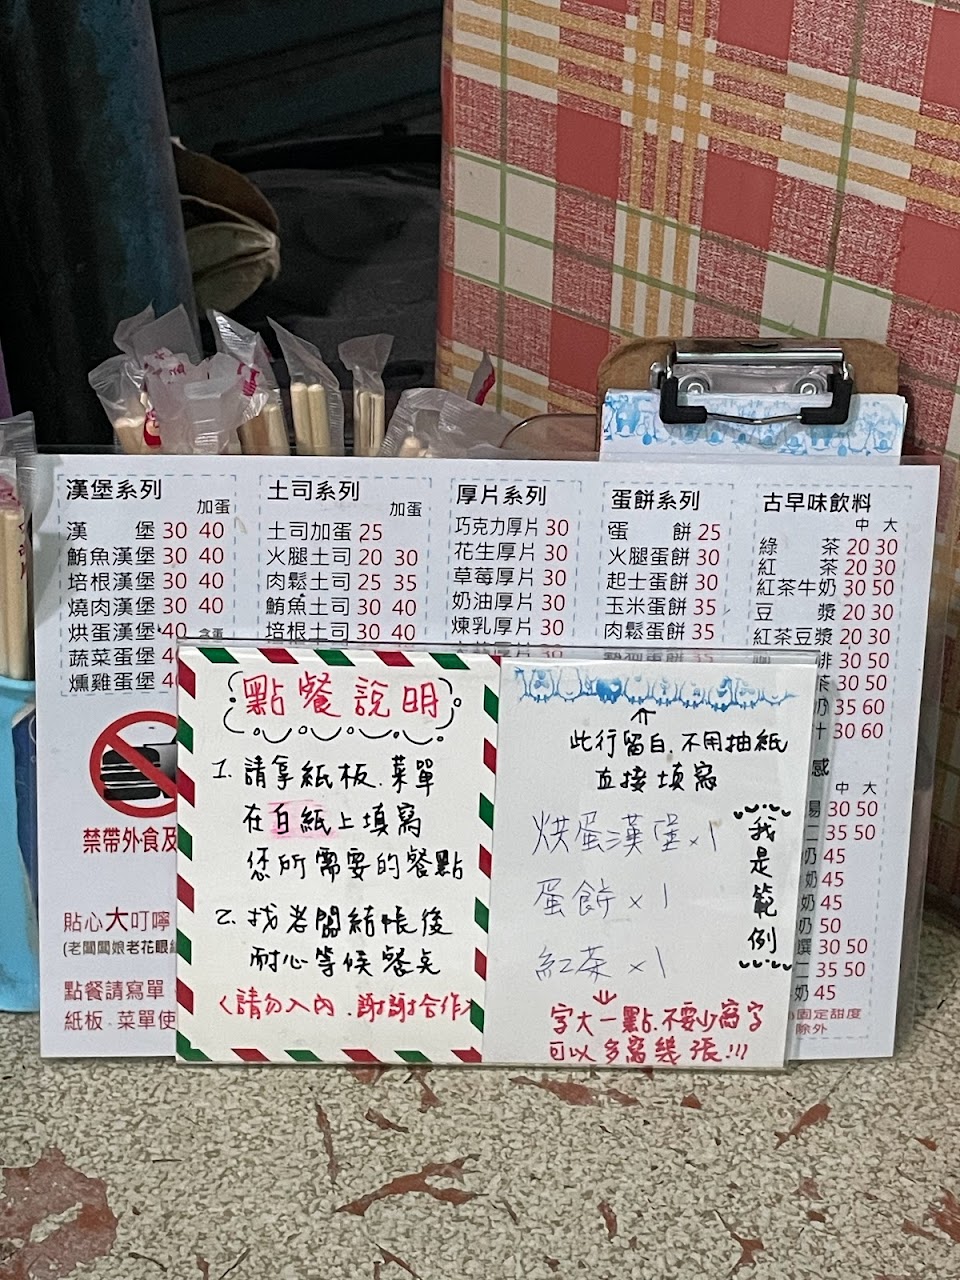 漢堡系列
加蛋
漢 堡 30 40
鮪魚漢堡 30 40
培根漢堡 30 40
燒肉漢堡 30 40
烘蛋漢堡 40 含蛋
蔬菜蛋堡 4
燻雞蛋堡 4
禁帶外食及
貼心大叮嚀
(老闆闆娘老花眼
點餐請寫單
紙板.菜單使
土司系列
加蛋
土司加蛋 25
火腿土司 20 30
肉鬆土司 25 35
鮪魚土司 30 40
培根土司 30 40
厚片系列
巧克力厚片 30
花生厚片 30
草莓厚片 30
奶油厚片 30
煉乳厚片 30
蛋餅系列
蛋 餅 25
火腿蛋餅 30
起士蛋餅 30
玉米蛋餅 35
肉鬆蛋餅 35
古早味飲料
中 大
綠 茶 20 30
紅 茶 20 30
紅茶牛奶 30 50
豆 漿 20 30
紅茶豆漿 20 30
啡 30 50
茶 30 50
奶 35 60
汁 30 60
感
中 大
易 30 50
二 35 50
奶 45
奶 45
奶 45
奶 50
選 30 50
二 35 50
奶 45
固定甜度
除外
點餐說明
1. 請拿紙板.菜單
在白紙上填寫
您所需要的餐點
2. 找老闆結帳後
耐心等候餐點
(請勿入內.謝謝合作)
此行留白.不用抽紙
直接填寫
烘蛋漢堡×1
蛋餅×1
紅茶×1
我是範例
字大一點.不要少寫字
可以多寫幾張!!!